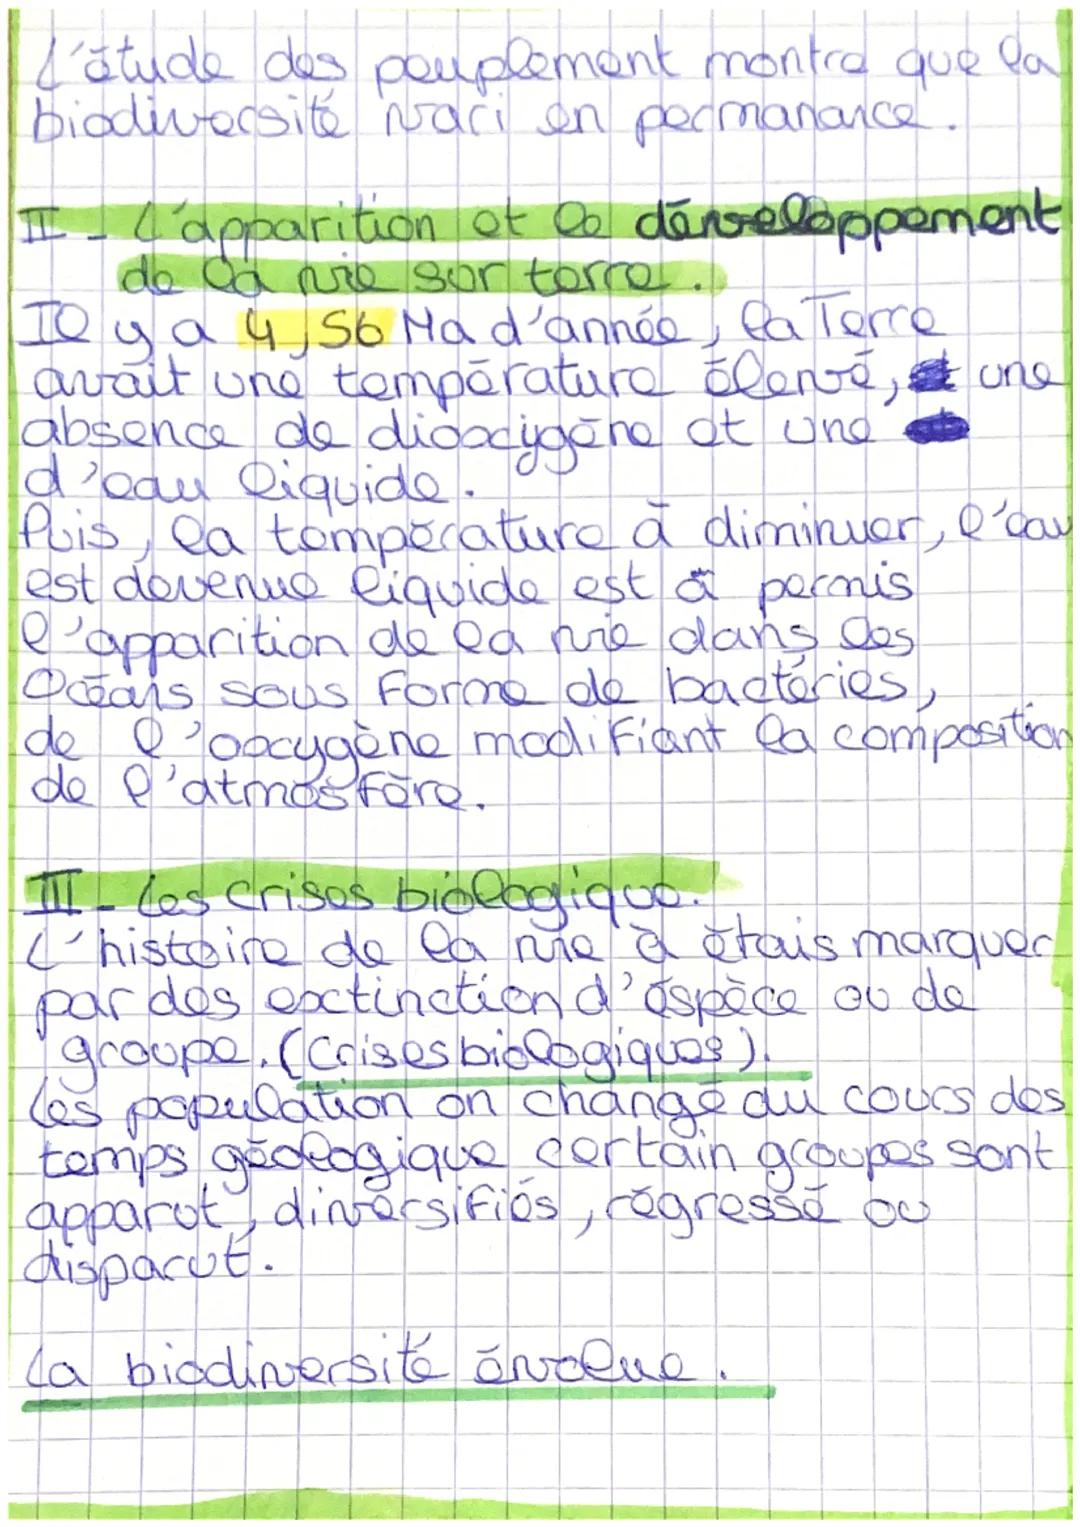 L'étude des peuplement montre que la
biodiversité vari en permanance.
II - L'apparition et le développement
de la vie sur terre.
Il y a 4,56 Ma d'année, la Terre
avait une température élevé, une
absence de dioxcygène et une
d'eau liquide.
Puis, la température à diminuer, l'eau
est devenue liquide est à permis
l'apparition de la vie dans les
Océans sous Forme de bactéries,
de l'oxcygène modifiant la composition
de l'atmosfère.
III - Les crises biologique.
L'histoire de la vie à étais marquer
par des extinction d'éspèce ou de
groupe. (Crises biologiques).
Les population on changé au cours des
temps géologique certain groupes sont
apparut, diversifiés, régressé ou
disparut.
La biodiversité évolue.